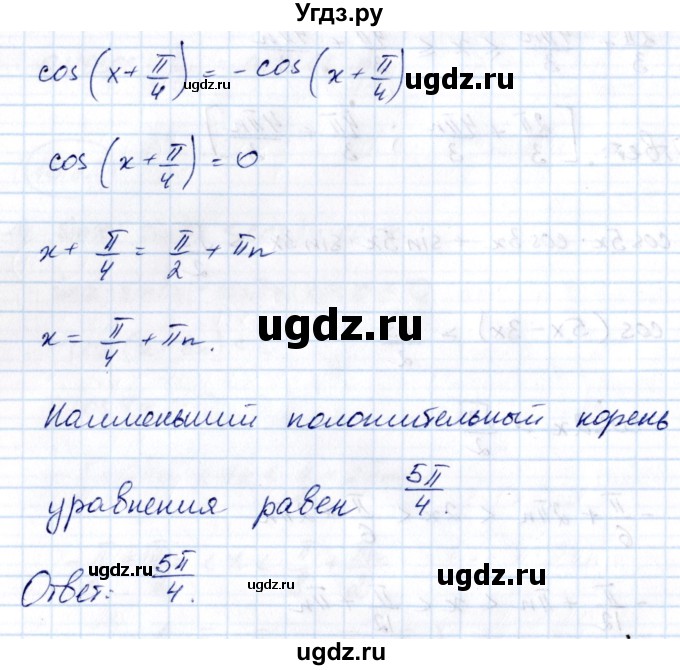 Угдз.ру
cos(x + π/4) = -cos(x + π/4)
ugdz.ru
ugdz.ru
cos(x + π/4) = 0
x + π/4 = π/2 + πn
x = π/4 + πn.
ugdz.ru
Наименьший положительный корень
уравнения равен 5π/4.
Ответ: 5π/4.
ugdz.ru
ugdz.ru
ugdz.ru
Угдз.ру